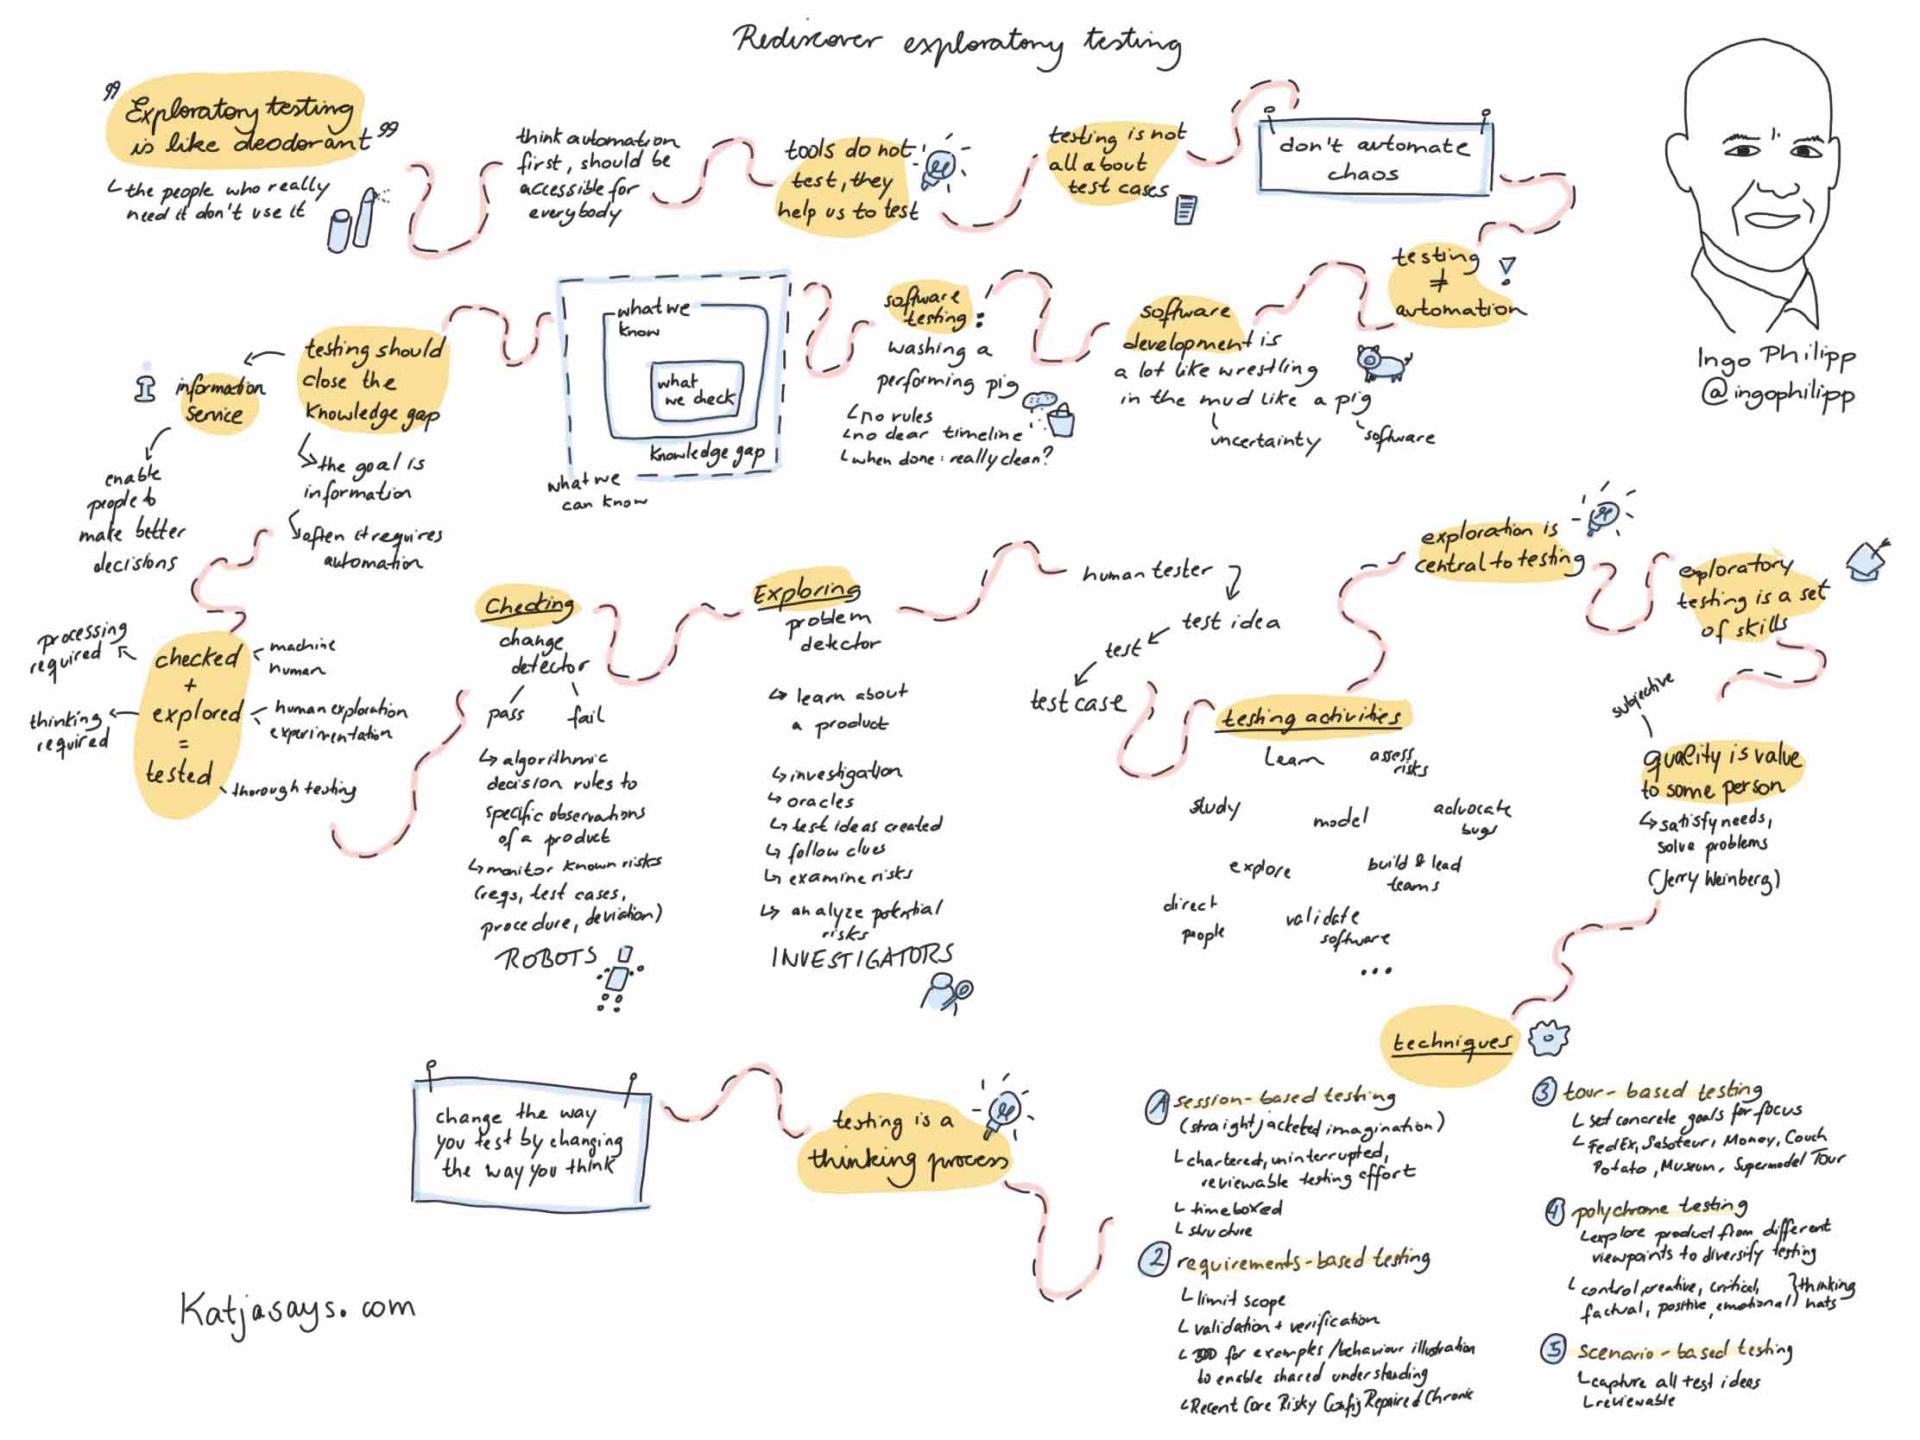 Rediscover exploratory testing
" Exploratory testing
is like deodorant "
the people who really
need it don't use it
think automation
first, should be
accessible for
everybody
tools do not
test, they
help us to test
testing is not
all about
test cases
don't automate
chaos
Ingo Philipp
@ingophilipp
testing
≠
automation
!
software
development is
a lot like wrestling
in the mud like a pig
uncertainty
software
software
testing :
washing a
performing pig
no rules
no clear timeline
when done: really clean?
what we
know
what
we check
knowledge gap
what we
can know
testing should
close the
knowledge gap
the goal is
information
often it requires
automation
i
information
service
enable
people to
make better
decisions
processing
required
checked
machine
human
+
thinking
required
explored
human exploration
experimentation
=
tested
thorough testing
Checking
change
detector
pass
fail
algorithmic
decision rules to
specific observations
of a product
monitor known risks
(regs, test cases,
procedure, deviation)
ROBOTS
Exploring
problem
detector
learn about
a product
investigation
oracles
test ideas created
follow clues
examine risks
analyze potential
risks
INVESTIGATORS
human tester
test idea
test
test case
testing activities
learn
assess
risks
study
model
advocate
bugs
explore
build & lead
teams
direct
people
validate
software
...
exploration is
central to testing
exploratory
testing is a set
of skills
subjective
quality is value
to some person
satisfy needs,
solve problems
(Jerry Weinberg)
techniques
1 session-based testing
(straightjacketed imagination)
chartered, uninterrupted,
reviewable testing effort
timeboxed
structure
2 requirements-based testing
limit scope
validation + verification
BDD for examples/behaviour illustration
to enable shared understanding
Recent Core Risky Config Repaired Chronic
3 tour-based testing
set concrete goals for focus
FedEx, Saboteur, Money, Couch
Potato, Museum, Supermodel Tour
4 polychrome testing
explore product from different
viewpoints to diversify testing
control, creative, critical, } thinking
factual, positive, emotional hats
5 scenario-based testing
capture all test ideas
reviewable
testing is a
thinking process
change the way
you test by changing
the way you think
Katjasays.com